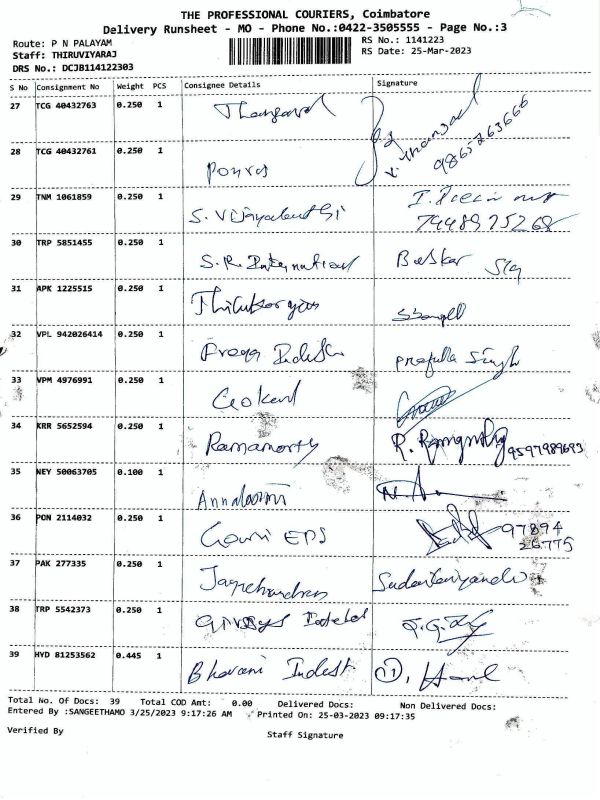 THE PROFESSIONAL COURIERS, Coimbatore
Delivery Runsheet - MO - Phone No.:0422-3505555 - Page No.:3
Route: P N PALAYAM
RS No.: 1141223
Staff: THIRUVIYARAJ
RS Date: 25-Mar-2023
DRS No.: DCJB114122303
S No Consignment No Weight PCS Consignee Details Signature
27 TCG 40432763 0.250 1 Thangavel V. Thangavel 9865263666
28 TCG 40432761 0.250 1
29 TNM 1061859 0.250 1 S.
30 TRP 5851455 0.250 1 S.R. International Baskar
31 APK 1225515 0.250 1
32 VPL 942026414 0.250 1 Prafulla Singh
33 VPM 4976991 0.250 1 Gokul
34 KRR 5652594 0.250 1 Ramamorthy R. 9597989693
35 NEY 50063705 0.100 1
36 PON 2114032 0.250 1 Gowri EPS 97894
26775
37 PAK 277335 0.250 1 Jayachandran
38 TRP 5542373 0.250 1
39 HYD 81253562 0.445 1 Bhavani Indest 11,
Total No. Of Docs: 39 Total COD Amt: 0.00 Delivered Docs: Non Delivered Docs:
Entered By :SANGEETHAMO 3/25/2023 9:17:26 AM Printed On: 25-03-2023 09:17:35
Verified By
Staff Signature